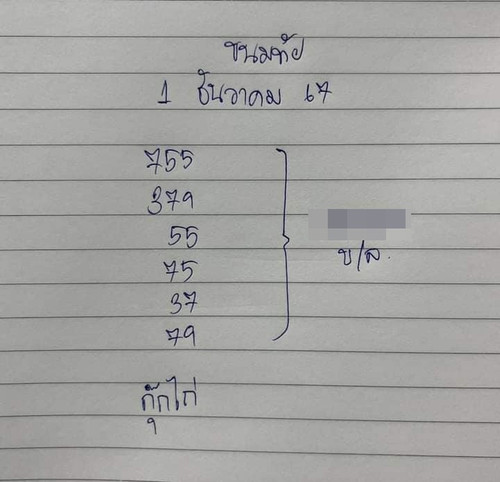 ขนมทัย
1 ธันวาคม 67
755
379
55
75
37
79
บ/ล.
กุ๊กไก่